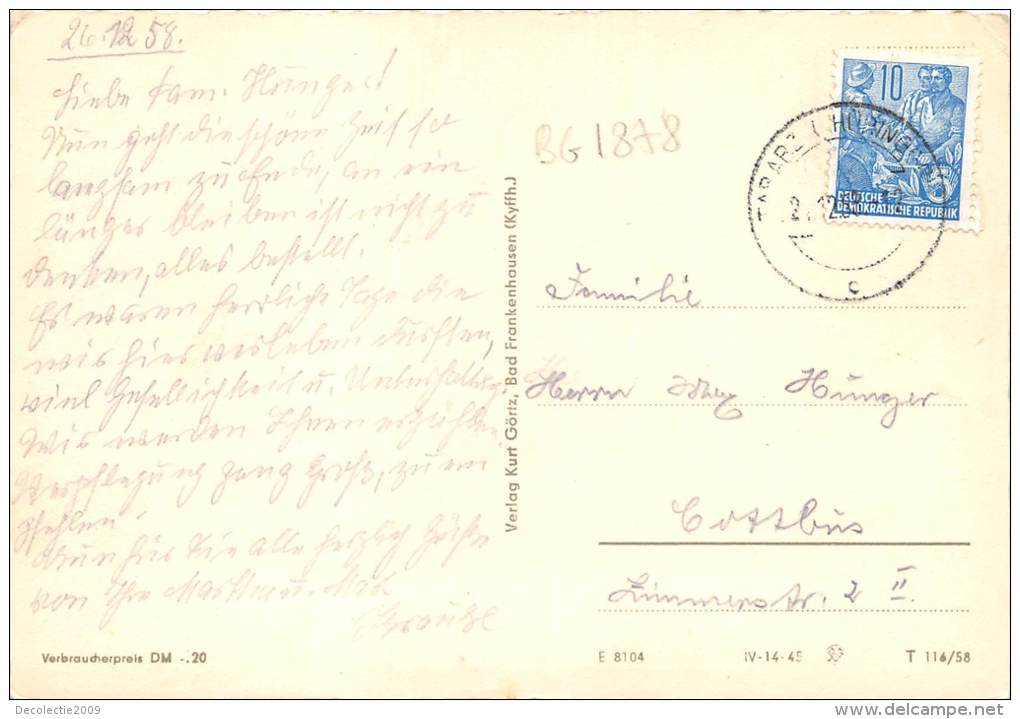 26.12 58.
Liebe Fam. Hünger!
Nun geht die schöne Zeit so
langsam zu Ende, an ein
länger bleiben ist nicht zu
denken, alles bestellt.
Es waren herrliche Tage die
wir hier verleben durften,
viel Geselligkeit u. Unterhaltung.
Wir werden Ihnen erzählen.
Verpflegung ganz groß, zu em
pfehlen.
Nun für Sie alle herzlich Grüße
von Ihre Martha u. Max
Verbraucherpreis DM -.20
Verlag Kurt Görtz, Bad Frankenhausen (Kyffh.)
BG 1878
10
DEUTSCHE
DEMOKRATISCHE REPUBLIK
TABARZ (THÜRING WALD)
12.58
c
Familie
Herrn Max Hünger
Cottbus
str. 2 II.
E 8104 IV-14-45 T 116/58
Decolectie2009
www.delcampe.net